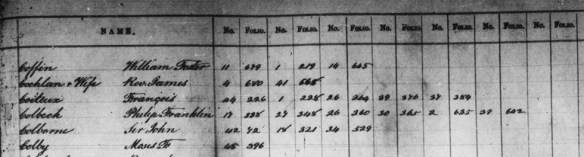 NAME. No. FOLIO. No. FOLIO. No. FOLIO. No. FOLIO. No. FOLIO. No. FOLIO. No. FOLIO. No.
Coffin William Foster 11 679 1 219 14 665
Cochlan & Wife Rev. James 4 680 41 568
Coiteux François 44 226 1 228 26 264 29 376 37 384
Colbeck Philip Franklin 17 338 27 348 26 360 30 365 2 635 32 642
Colborne Sir John 42 72 18 321 34 529
Colby Moses F. 45 396